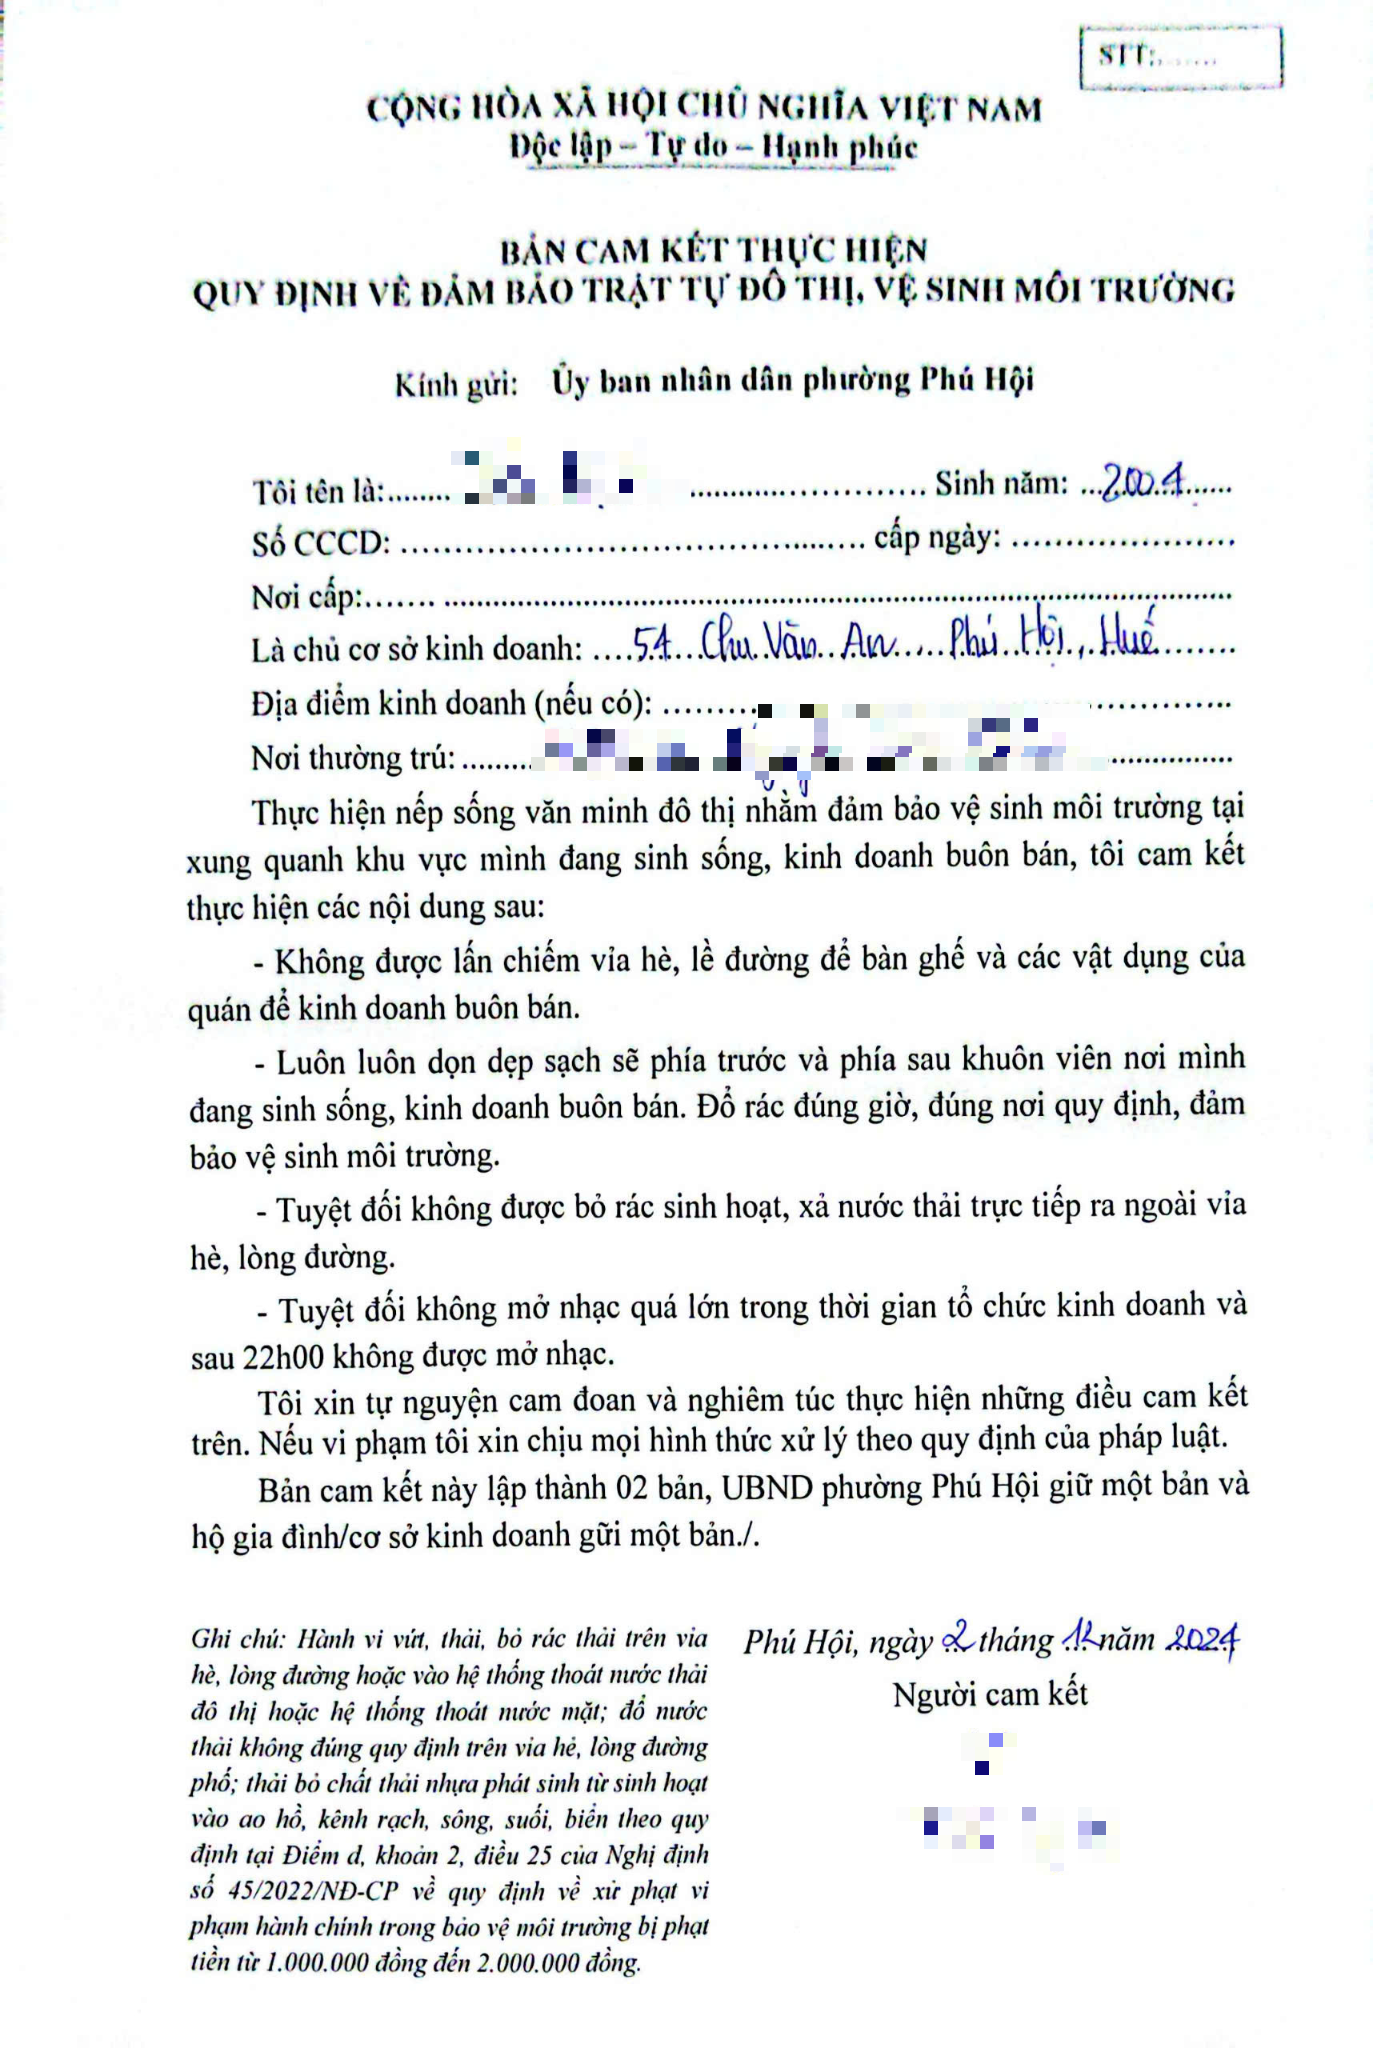 STT:........
CỘNG HÒA XÃ HỘI CHỦ NGHĨA VIỆT NAM
Độc lập – Tự do – Hạnh phúc
BẢN CAM KẾT THỰC HIỆN
QUY ĐỊNH VỀ ĐẢM BẢO TRẬT TỰ ĐÔ THỊ, VỆ SINH MÔI TRƯỜNG
Kính gửi: Ủy ban nhân dân phường Phú Hội
Tôi tên là:........ ........................... Sinh năm: ...2004......
Số CCCD: ............................................. cấp ngày: ......................
Nơi cấp:....... ...............................................................................
Là chủ cơ sở kinh doanh: ....54...Chu Văn An...., Phú Hội, Huế........
Địa điểm kinh doanh (nếu có): ......... ..............
Nơi thường trú: ......... ..............
Thực hiện nếp sống văn minh đô thị nhằm đảm bảo vệ sinh môi trường tại
xung quanh khu vực mình đang sinh sống, kinh doanh buôn bán, tôi cam kết
thực hiện các nội dung sau:
- Không được lấn chiếm vỉa hè, lề đường để bàn ghế và các vật dụng của
quán để kinh doanh buôn bán.
- Luôn luôn dọn dẹp sạch sẽ phía trước và phía sau khuôn viên nơi mình
đang sinh sống, kinh doanh buôn bán. Đổ rác đúng giờ, đúng nơi quy định, đảm
bảo vệ sinh môi trường.
- Tuyệt đối không được bỏ rác sinh hoạt, xả nước thải trực tiếp ra ngoài vỉa
hè, lòng đường.
- Tuyệt đối không mở nhạc quá lớn trong thời gian tổ chức kinh doanh và
sau 22h00 không được mở nhạc.
Tôi xin tự nguyện cam đoan và nghiêm túc thực hiện những điều cam kết
trên. Nếu vi phạm tôi xin chịu mọi hình thức xử lý theo quy định của pháp luật.
Bản cam kết này lập thành 02 bản, UBND phường Phú Hội giữ một bản và
hộ gia đình/cơ sở kinh doanh gữi một bản./.
Ghi chú: Hành vi vứt, thải, bỏ rác thải trên vỉa
hè, lòng đường hoặc vào hệ thống thoát nước thải
đô thị hoặc hệ thống thoát nước mặt; đổ nước
thải không đúng quy định trên vỉa hè, lòng đường
phố; thải bỏ chất thải nhựa phát sinh từ sinh hoạt
vào ao hồ, kênh rạch, sông, suối, biển theo quy
định tại Điểm d, khoản 2, điều 25 của Nghị định
số 45/2022/NĐ-CP về quy định về xử phạt vi
phạm hành chính trong bảo vệ môi trường bị phạt
tiền từ 1.000.000 đồng đến 2.000.000 đồng.
Phú Hội, ngày 2 tháng 12 năm 2024
Người cam kết